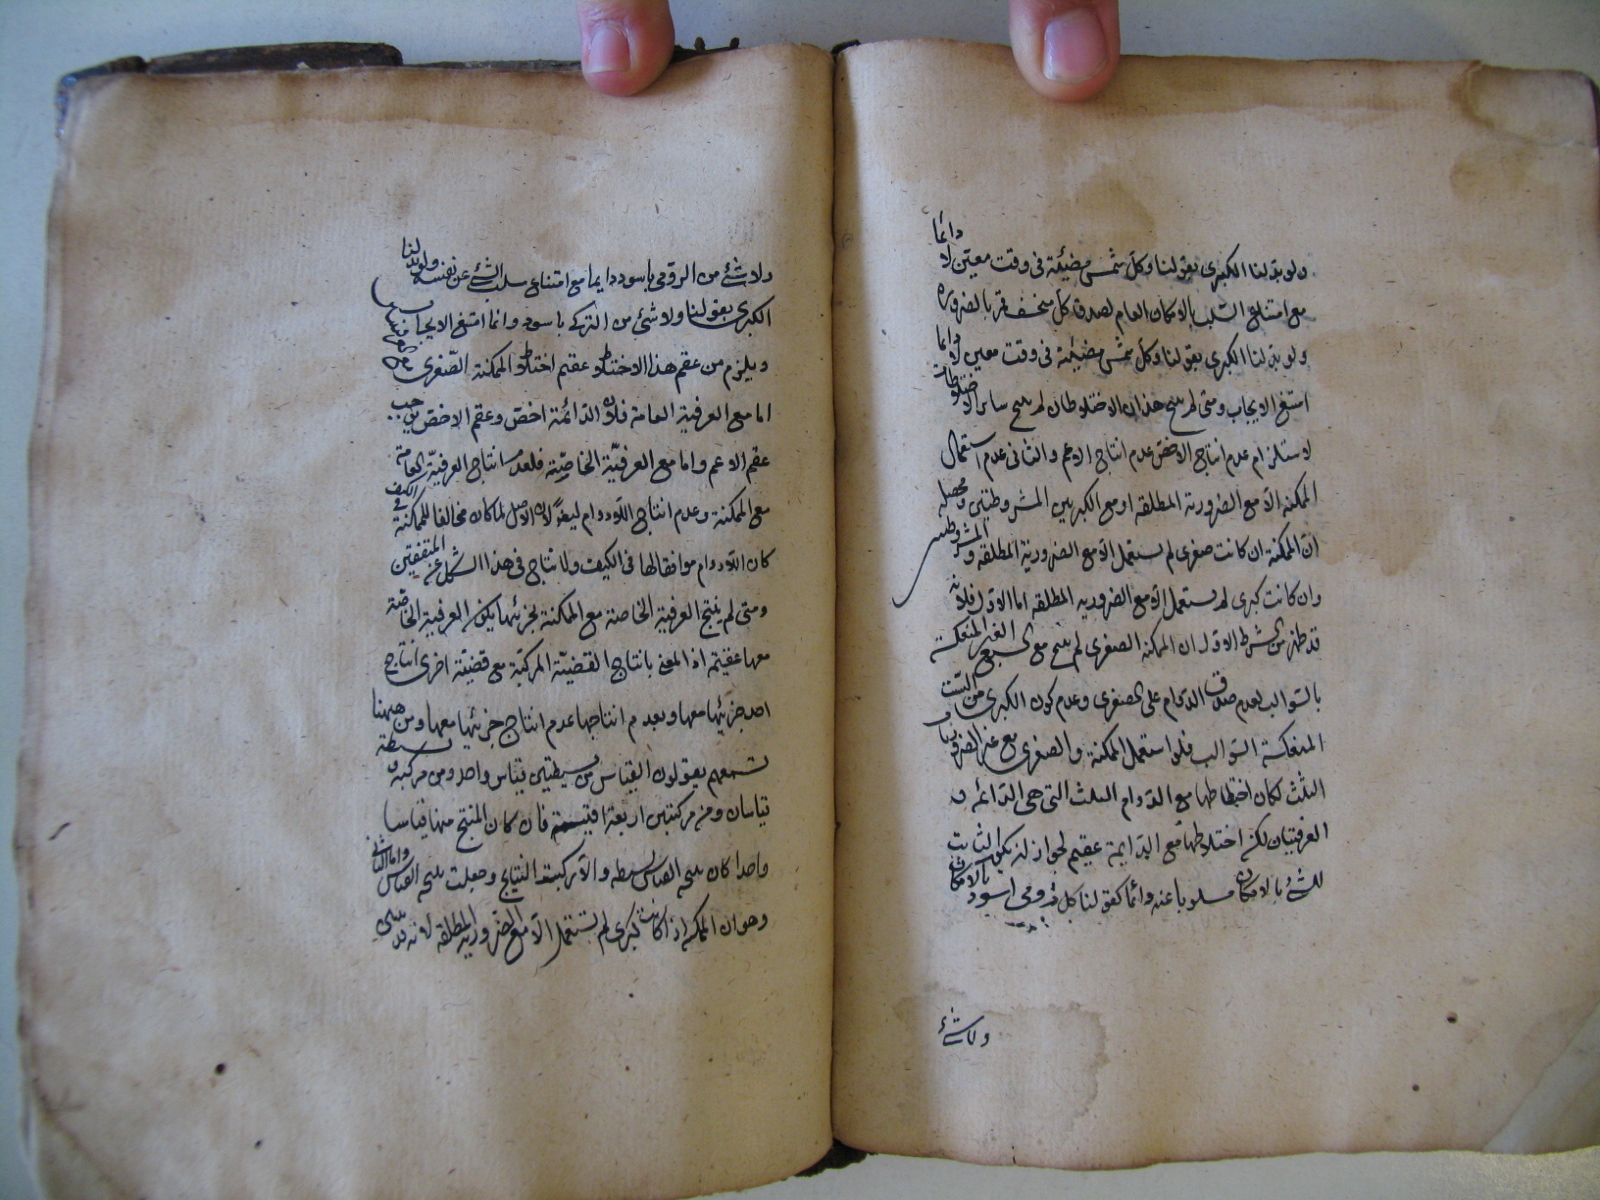 ولو بدلنا الكبرى بقولنا وكل شمس مضيئة فى وقت معين لا دائما
مع امتناع السلب بالامكان العام لصدق كل منخسف قمر بالضرورة
ولو بدلنا الكبرى بقولنا وكل شمس مضيئة فى وقت معين لا دائما
امتنع الايجاب ومتى لم ينتج هذان الاختلاطان لم ينتج ساير الاختلاطات
لاستلزام عدم انتاج الاخص عدم انتاج الاعم والثانى عدم استعمال
الممكنة الا مع الضرورية المطلقة او مع الكبريين المشروطتين ومحصله
ان الممكنة ان كانت صغرى لم تستعمل الا مع الضرورية المطلقة والمشروطتين
وان كانت كبرى لم تستعمل الا مع الضرورية المطلقة اما الاول فلانه
قد ظهر من الشرط الاول ان الممكنة الصغرى لم ينتج مع السبع الغير المنعكسة
بالسوالب لعدم صدق الدوام على الصغرى وعدم كون الكبرى من الست
المنعكسة السوالب فلو استعمل الممكنة الصغرى مع غير الضروريات
الثلث لكان اختلاطها مع الدوام الثلث التى هى الدائمة و
العرفيتان لكن اختلاطها مع الدايمة عقيم لجواز ان يكون الثابت
للشئ بالامكان مسلوبا عنه دائما كقولنا كل رومى اسود بالامكان
ولاشئ
ولا شئ من الرومى باسود دايما مع امتناع سلب الشئ عن نفسه ولو بدلنا
الكبرى بقولنا ولا شئ من التركى باسود دائما امتنع الايجاب
ويلزم من عقم هذا الاختلاط عقم اختلاط الممكنة الصغرى
اما مع العرفية العامة فلان الدائمة اخص وعقم الاخص يوجب
عقم الاعم واما مع العرفية الخاصة فلعدم انتاج العرفية العامة
مع الممكنة وعدم انتاج اللادوام ايضا لان الاصل لما كان مخالفا للممكنة فى الكيف
كان اللادوام موافقا لها فى الكيف ولا انتاج فى هذا الشكل عن المتفقتين
ومتى لم ينتج العرفية الخاصة مع الممكنة بجزئيها يكون العرفية الخاصة
معها عقيمة اذ المعنى بانتاج القضية المركبة مع قضية اخرى انتاج
احد جزئيها معها وبعدم انتاجها عدم انتاج جزئيها معها ومن ههنا
تسمعهم يقولون القياس من بسيطتين قياس واحد ومن مركبة وبسيطة
قياسان ومن مركبتين اربعة اقيسة فان كان المنتج منها قياسا
واحدا كان نتيجة القياس بسيطة والا ركبت النتايج وجعلت نتيجة القياس واما الثانى
وهو ان الممكنة اذا كانت كبرى لم تستعمل الا مع الضرورية المطلقة لانه قد تبين